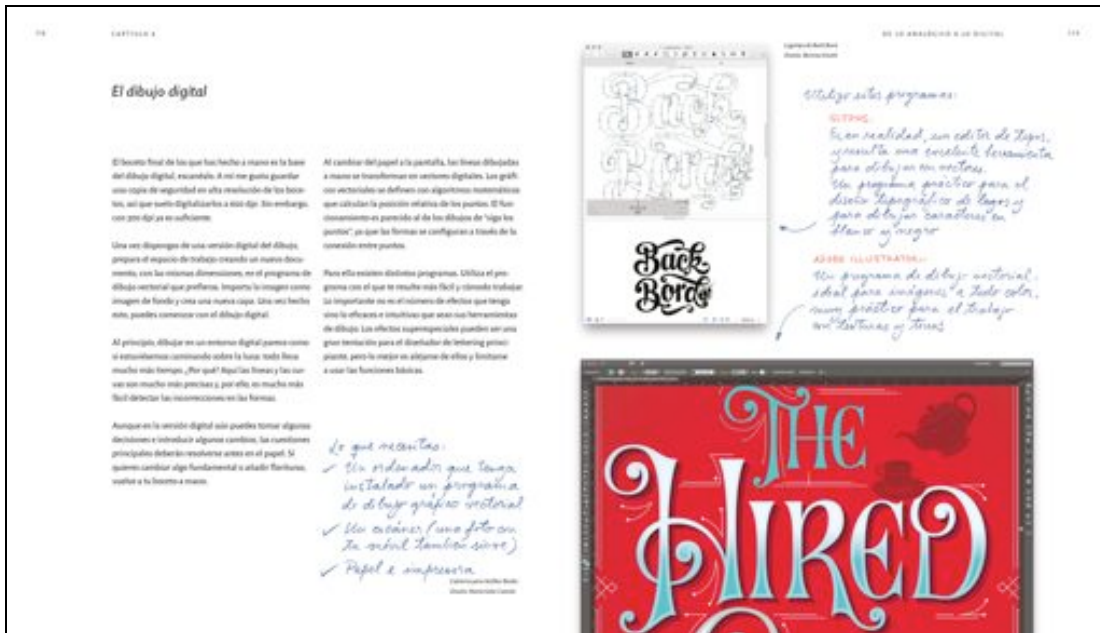 118
CAPÍTULO 6
El dibujo digital
El boceto final de los que has hecho a mano es la base
del dibujo digital, escanéalo. A mí me gusta guardar
una copia de seguridad en alta resolución de los boce-
tos, así que suelo digitalizarlos a 600 dpi. Sin embargo,
con 300 dpi ya es suficiente.
Una vez dispongas de una versión digital del dibujo,
prepara el espacio de trabajo creando un nuevo docu-
mento, con las mismas dimensiones, en el programa de
dibujo vectorial que prefieras. Importa la imagen como
imagen de fondo y crea una nueva capa. Una vez hecho
esto, puedes comenzar con el dibujo digital.
Al principio, dibujar en un entorno digital parece como
si estuviéramos caminando sobre la luna: todo lleva
mucho más tiempo. ¿Por qué? Aquí las líneas y las cur-
vas son mucho más precisas y, por ello, es mucho más
fácil detectar las incorrecciones en las formas.
Aunque en la versión digital aún puedes tomar algunas
decisiones e introducir algunos cambios, las cuestiones
principales deberán resolverse antes en el papel. Si
quieres cambiar algo fundamental o añadir florituras,
vuelve a tu boceto a mano.
Al cambiar del papel a la pantalla, las líneas dibujadas
a mano se transforman en vectores digitales. Los gráfi-
cos vectoriales se definen con algoritmos matemáticos
que calculan la posición relativa de los puntos. El fun-
cionamiento es parecido al de los dibujos de "siga los
puntos", ya que las formas se configuran a través de la
conexión entre puntos.
Para ello existen distintos programas. Utiliza el pro-
grama con el que te resulte más fácil y cómodo trabajar.
Lo importante no es el número de efectos que tenga
sino lo eficaces e intuitivas que sean sus herramientas
de dibujo. Los efectos superespeciales pueden ser una
gran tentación para el diseñador de lettering princi-
piante, pero lo mejor es alejarse de ellos y limitarse
a usar las funciones básicas.
Lo que necesitas:
✓ Un ordenador que tenga
instalado un programa
de dibujo gráfico vectorial
✓ Un escáner (una foto con
tu móvil también sirve)
✓ Papel e impresora
DE LO ANALÓGICO A LO DIGITAL
119
Back
Bord
Back
Bord
Utilizo estos programas:
GLYPHS:
Es, en realidad, un editor de tipos,
y resulta una excelente herramienta
para dibujar en vectores.
Un programa práctico para el
diseño tipográfico de logos y
para dibujar caracteres en
blanco y negro
ADOBE ILLUSTRATOR:
Un programa de dibujo vectorial,
ideal para imágenes a todo color,
muy práctico para el trabajo
con texturas y tramas
THE
HIRED